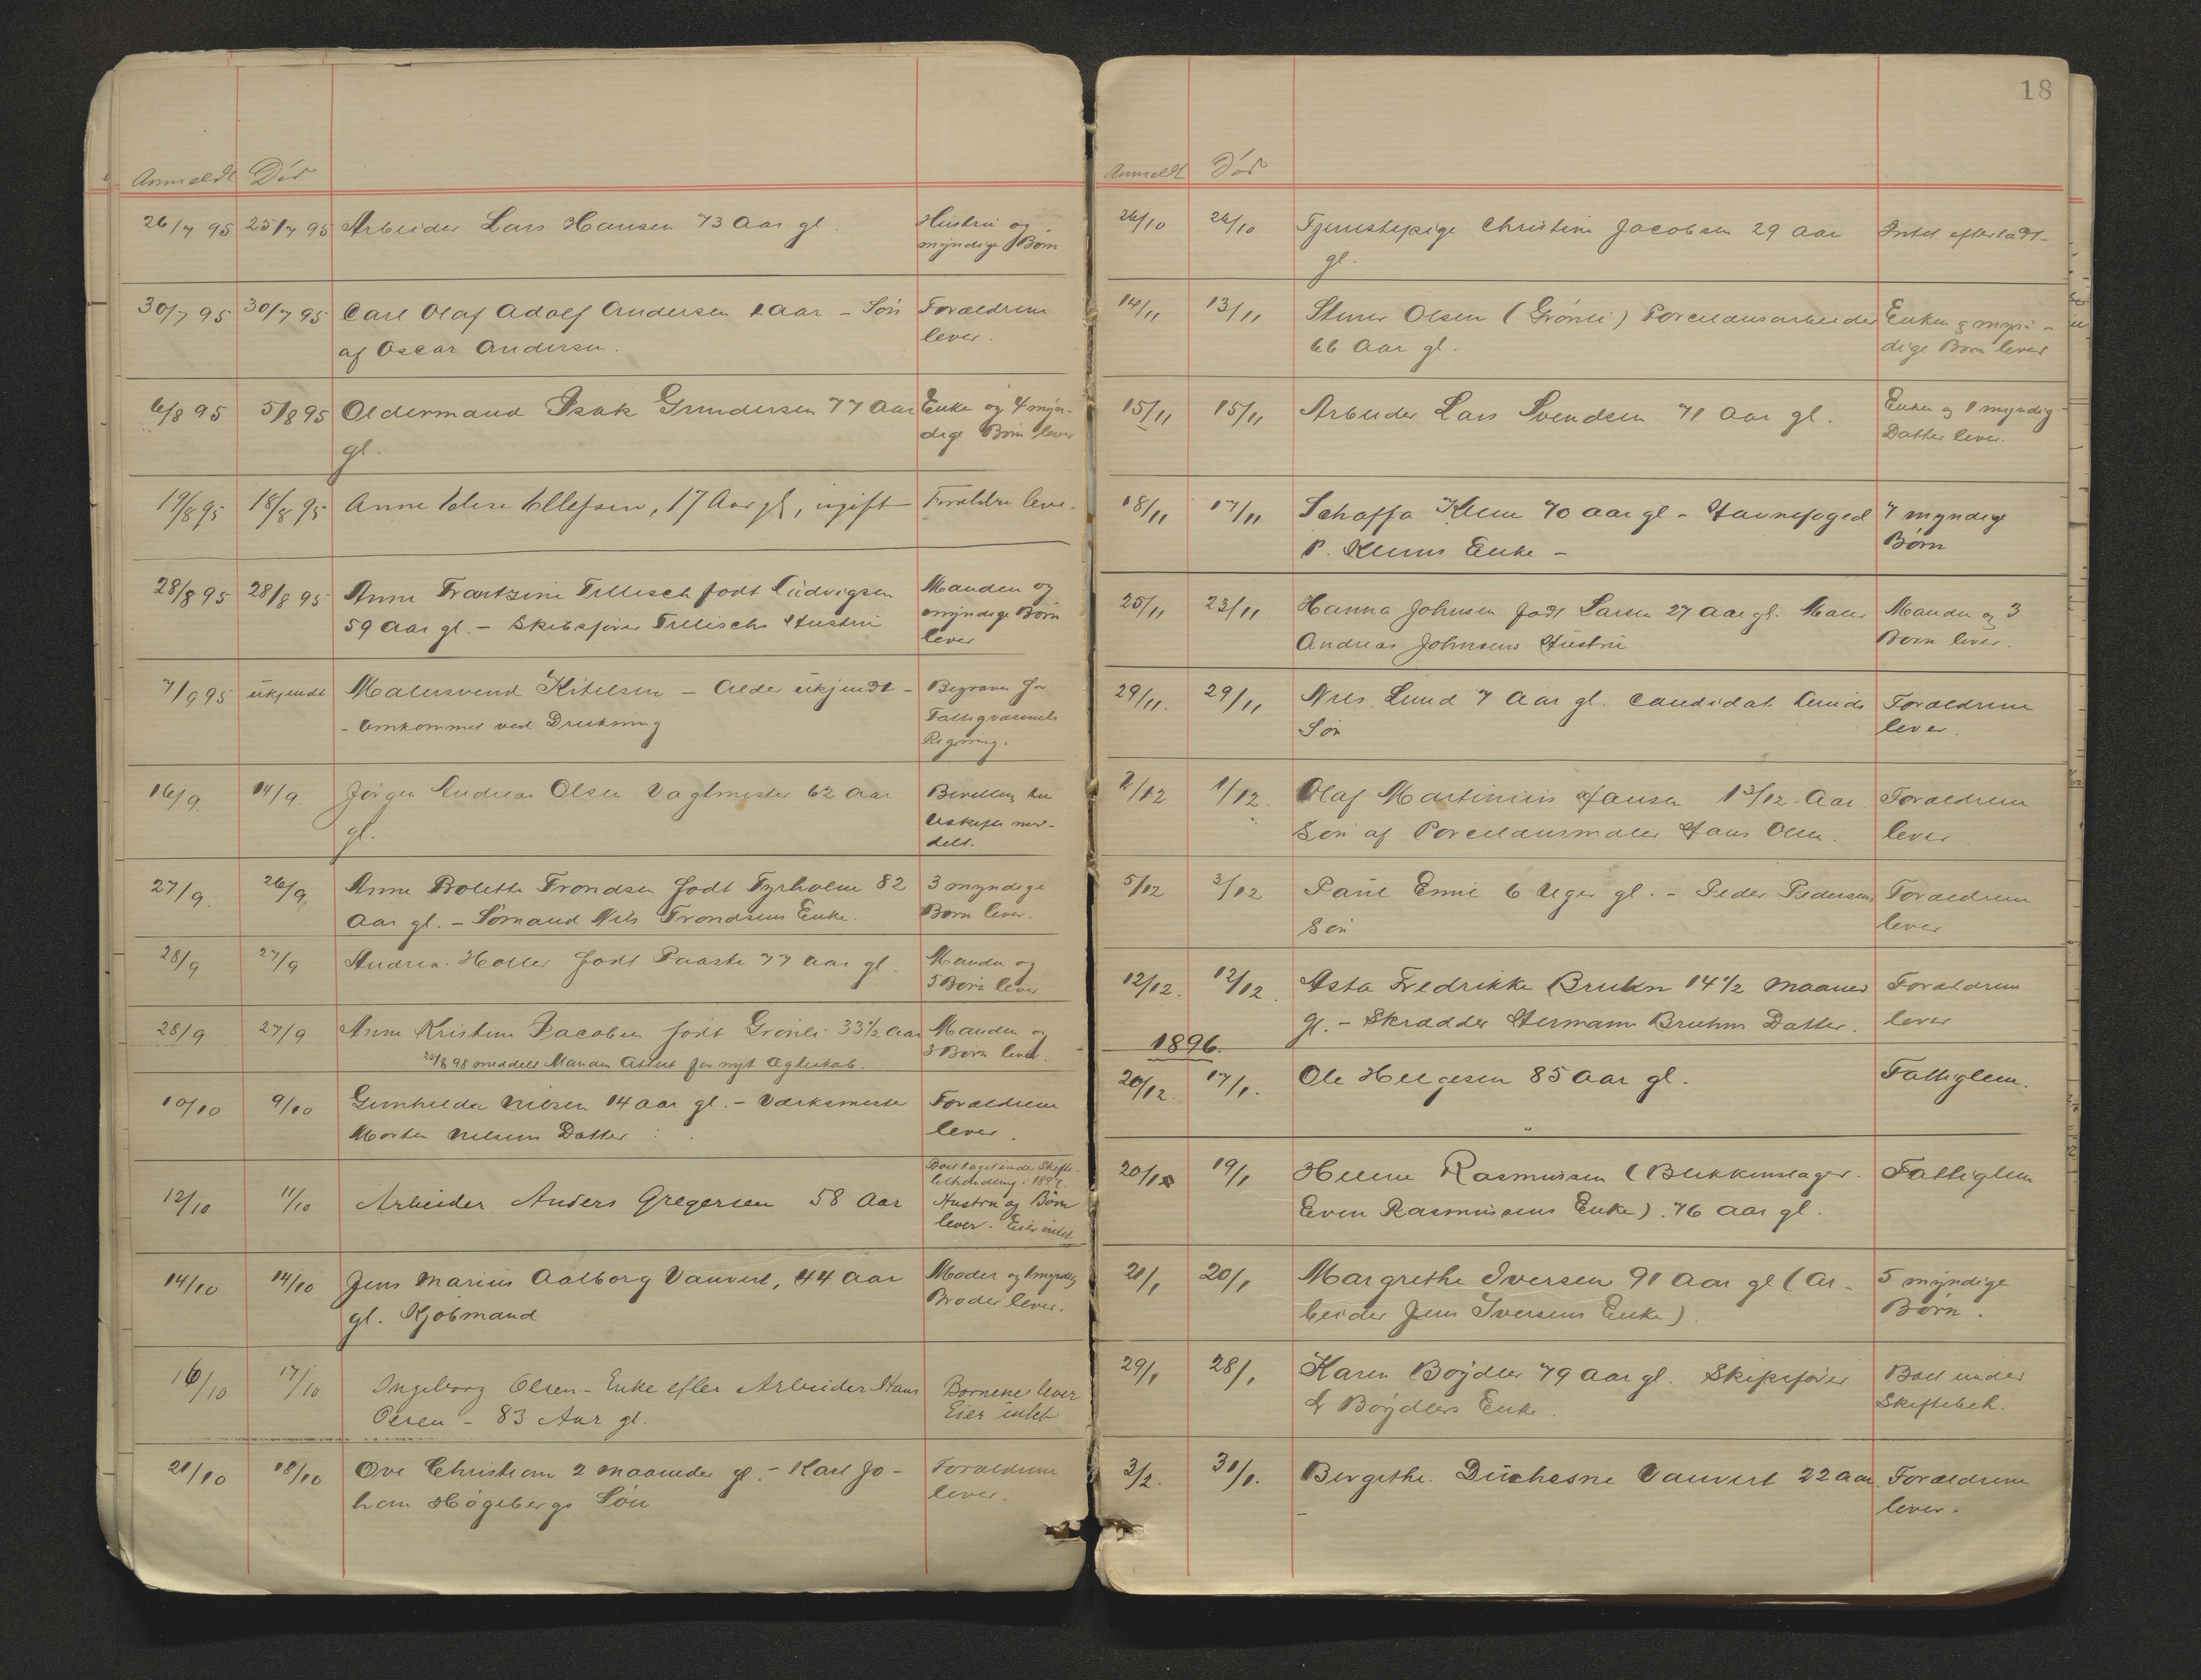 Anmeldt Död
26/7 95 25/7 95 Arbeider Lars Hansen 73 Aar gl. Hustru og
myndige Børn
30/7 95 30/7 95 Carl Olaf Adolf Andersen 1 Aar – Søn Forældrene
af Oscar Andersen. lever.
6/8 95 5/8 95 Oldermand Isak Gundersen 77 Aar Enke og 4 myn-
gl. dige Børn lever
19/8 95 18/8 95 Anne Ellefsen, 17 Aar gl, ugift Forældre leve.
28/8 95 28/8 95 Anne Frantzine Tellisch født Ludvigsen Manden og
59 Aar gl. – Skibsfører Tellischs Hustru myndige Børn
lever
7/9 95 ukjendt Malersvend Kitelsen – Alder ukjendt – Begraves for
– Omkommet ved Drukning Fattigvæsenets
Regning.
16/9. 14/9. Jörgen Andreas Olsen Vagtmester 62 Aar Bevilling
gl. Uskifte med-
delt.
27/9. 26/9. Anne Bolette Trondsen født Tyrholm 82 3 myndige
Aar gl. – Sømand Nils Trondsens Enke. Børn lever.
28/9 27/9 Andrea Holler født Paaske 77 Aar gl. Manden og
5 Børn lever
28/9 27/9 Anne Kristine Jacobsen født Grönli 33 1/2 Aar Manden og
20/6 98 meddelt Manden Attest for nyt Ægteskab. 3 Børn lever.
10/10 9/10 Gunhilda Nilsen 14 Aar gl. – Værksmester Forældrene
Morten Nilsens Datter lever.
Boet taget under Skifte-
behandling i 1897.
12/10 11/10 Arbeider Anders Gregersen 58 Aar Hustru og Børn
lever. Eier intet
14/10 14/10 Jens Marius Aalborg Vauvert, 44 Aar Moder og 1 myndig
gl. Kjøbmand Broder lever.
16/10 17/10 Ingeborg Olsen – Enke efter Arbeider Hans Børnene lever
Olsen – 83 Aar gl. Eier intet
21/10 18/10 Ove Christian 2 Maaneder gl. – Karl Jo- Forældrene
han Högebergs Søn lever.
18
Anmeldt Död
26/10 26/10 Tjenestepige Christine Jacobsen 29 Aar Intet efterladt –
gl.
14/11 13/11 Olsen (Grönli) Porcelænsarbeider Enken & myn-
66 Aar gl. dige Børn lever
15/11 15/11 Arbeider Lars Svendsen 71 Aar gl. Enken og 1 myndig
Datter lever.
18/11 17/11 Klem 70 Aar gl – Havnefoged 7 myndige
P. Klems Enke – Børn
25/11 23/11 Hanna Johnsen født Larsen 27 Aar gl. Maler Manden og 3
Andreas Johnsens Hustru Børn lever.
29/11. 29/11 Nils Lund 7 Aar gl. Candidat Lunds Forældrene
Søn lever.
2/12 1/12. Olaf Martinius Hansen 1 3/12 Aar Forældrene
Søn af Porcelænsmaler Hans Olsen. lever
5/12 3/12 Paul Emil 6 Uger gl. – Peder Pedersens Forældrene
Søn lever
12/12. 12/12. Asta Fredrikke Bruhn 14 1/2 Maaned Forældrene
gl. – Skrædder Hermann Bruhns Datter. lever
1896.
20/12. 17/1. Ole Helgesen 85 Aar gl. Fattiglem.
20/1 19/1 Helene Rasmussen (Blikkenslager Fattiglem
Even Rasmussens Enke). 76 Aar gl.
21/1 20/1 Margrethe Iversen 91 Aar gl (Ar- 5 myndige
beider Jens Iversens Enke). Børn.
29/1 28/1 Karen Böydler 79 Aar gl. Skipsfører Boet under
Böydlers Enke. Skiftebeh.
3/2. 31/1. Bergithe Duchesne Vauvert 22 Aar Forældrene
lever.